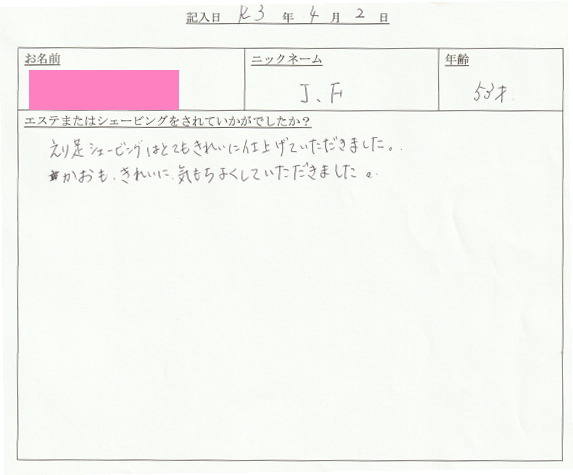 記入日 R3 年 4 月 2 日
お名前 ニックネーム 年齢
J、F 53才
エステまたはシェービングをされていかがでしたか？
えり足シェービングはとてもきれいに仕上げていただきました。
かおも、きれいに、気もちよくしていただきました。